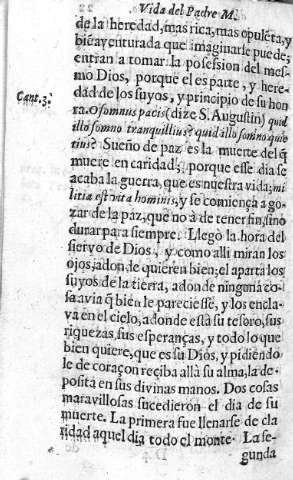 Vida del Padre M.
de la heredad, mas rica, mas opulẽta, y
biẽ avẽturada que imaginarſe puede;
entran a tomar la poſeſsion del meſ-
mo Dios, porque el es parte, y here-
dad de los ſuyos, y principio de ſu hon
Cant. 3.
ra. O ſomnus pacis (dize S. Auguſtin) quid
illo ſomno tranquillius? quid illo ſomno quie
tius? Sueño de paz es la muerte del q̃
muere en caridad; porque eſſe dia ſe
acaba la guerra, que es nueſtra vida; mi
litia eſt vita hominis, y ſe comiença a go-
zar de la paz, que no à de tener fin, ſino
durar para ſiempre. Llegò la hora del
ſiervo de Dios, y como alli miran los
ojos, adonde quieren bien; el aparta los
ſuyos de la tierra, adonde ninguna co-
ſa avia q̃ bien le pareciesſe, y los encla-
va en el cielo, adonde eſtà ſu teſoro, ſus
riquezas, ſus eſperanças, y todo lo que
bien quiere, que es ſu Dios, y pidiendo
le de coraçon reciba allà ſu alma, la de-
poſita en ſus divinas manos. Dos coſas
maravilloſas ſucedieron el dia de ſu
muerte. La primera fue llenarſe de cla
ridad aquel dia todo el monte. La ſe-
gunda